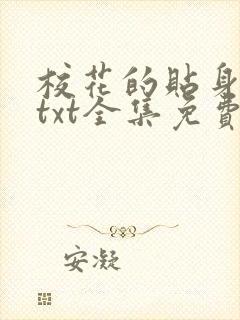 校花的貼身
txt全集免費
安凝